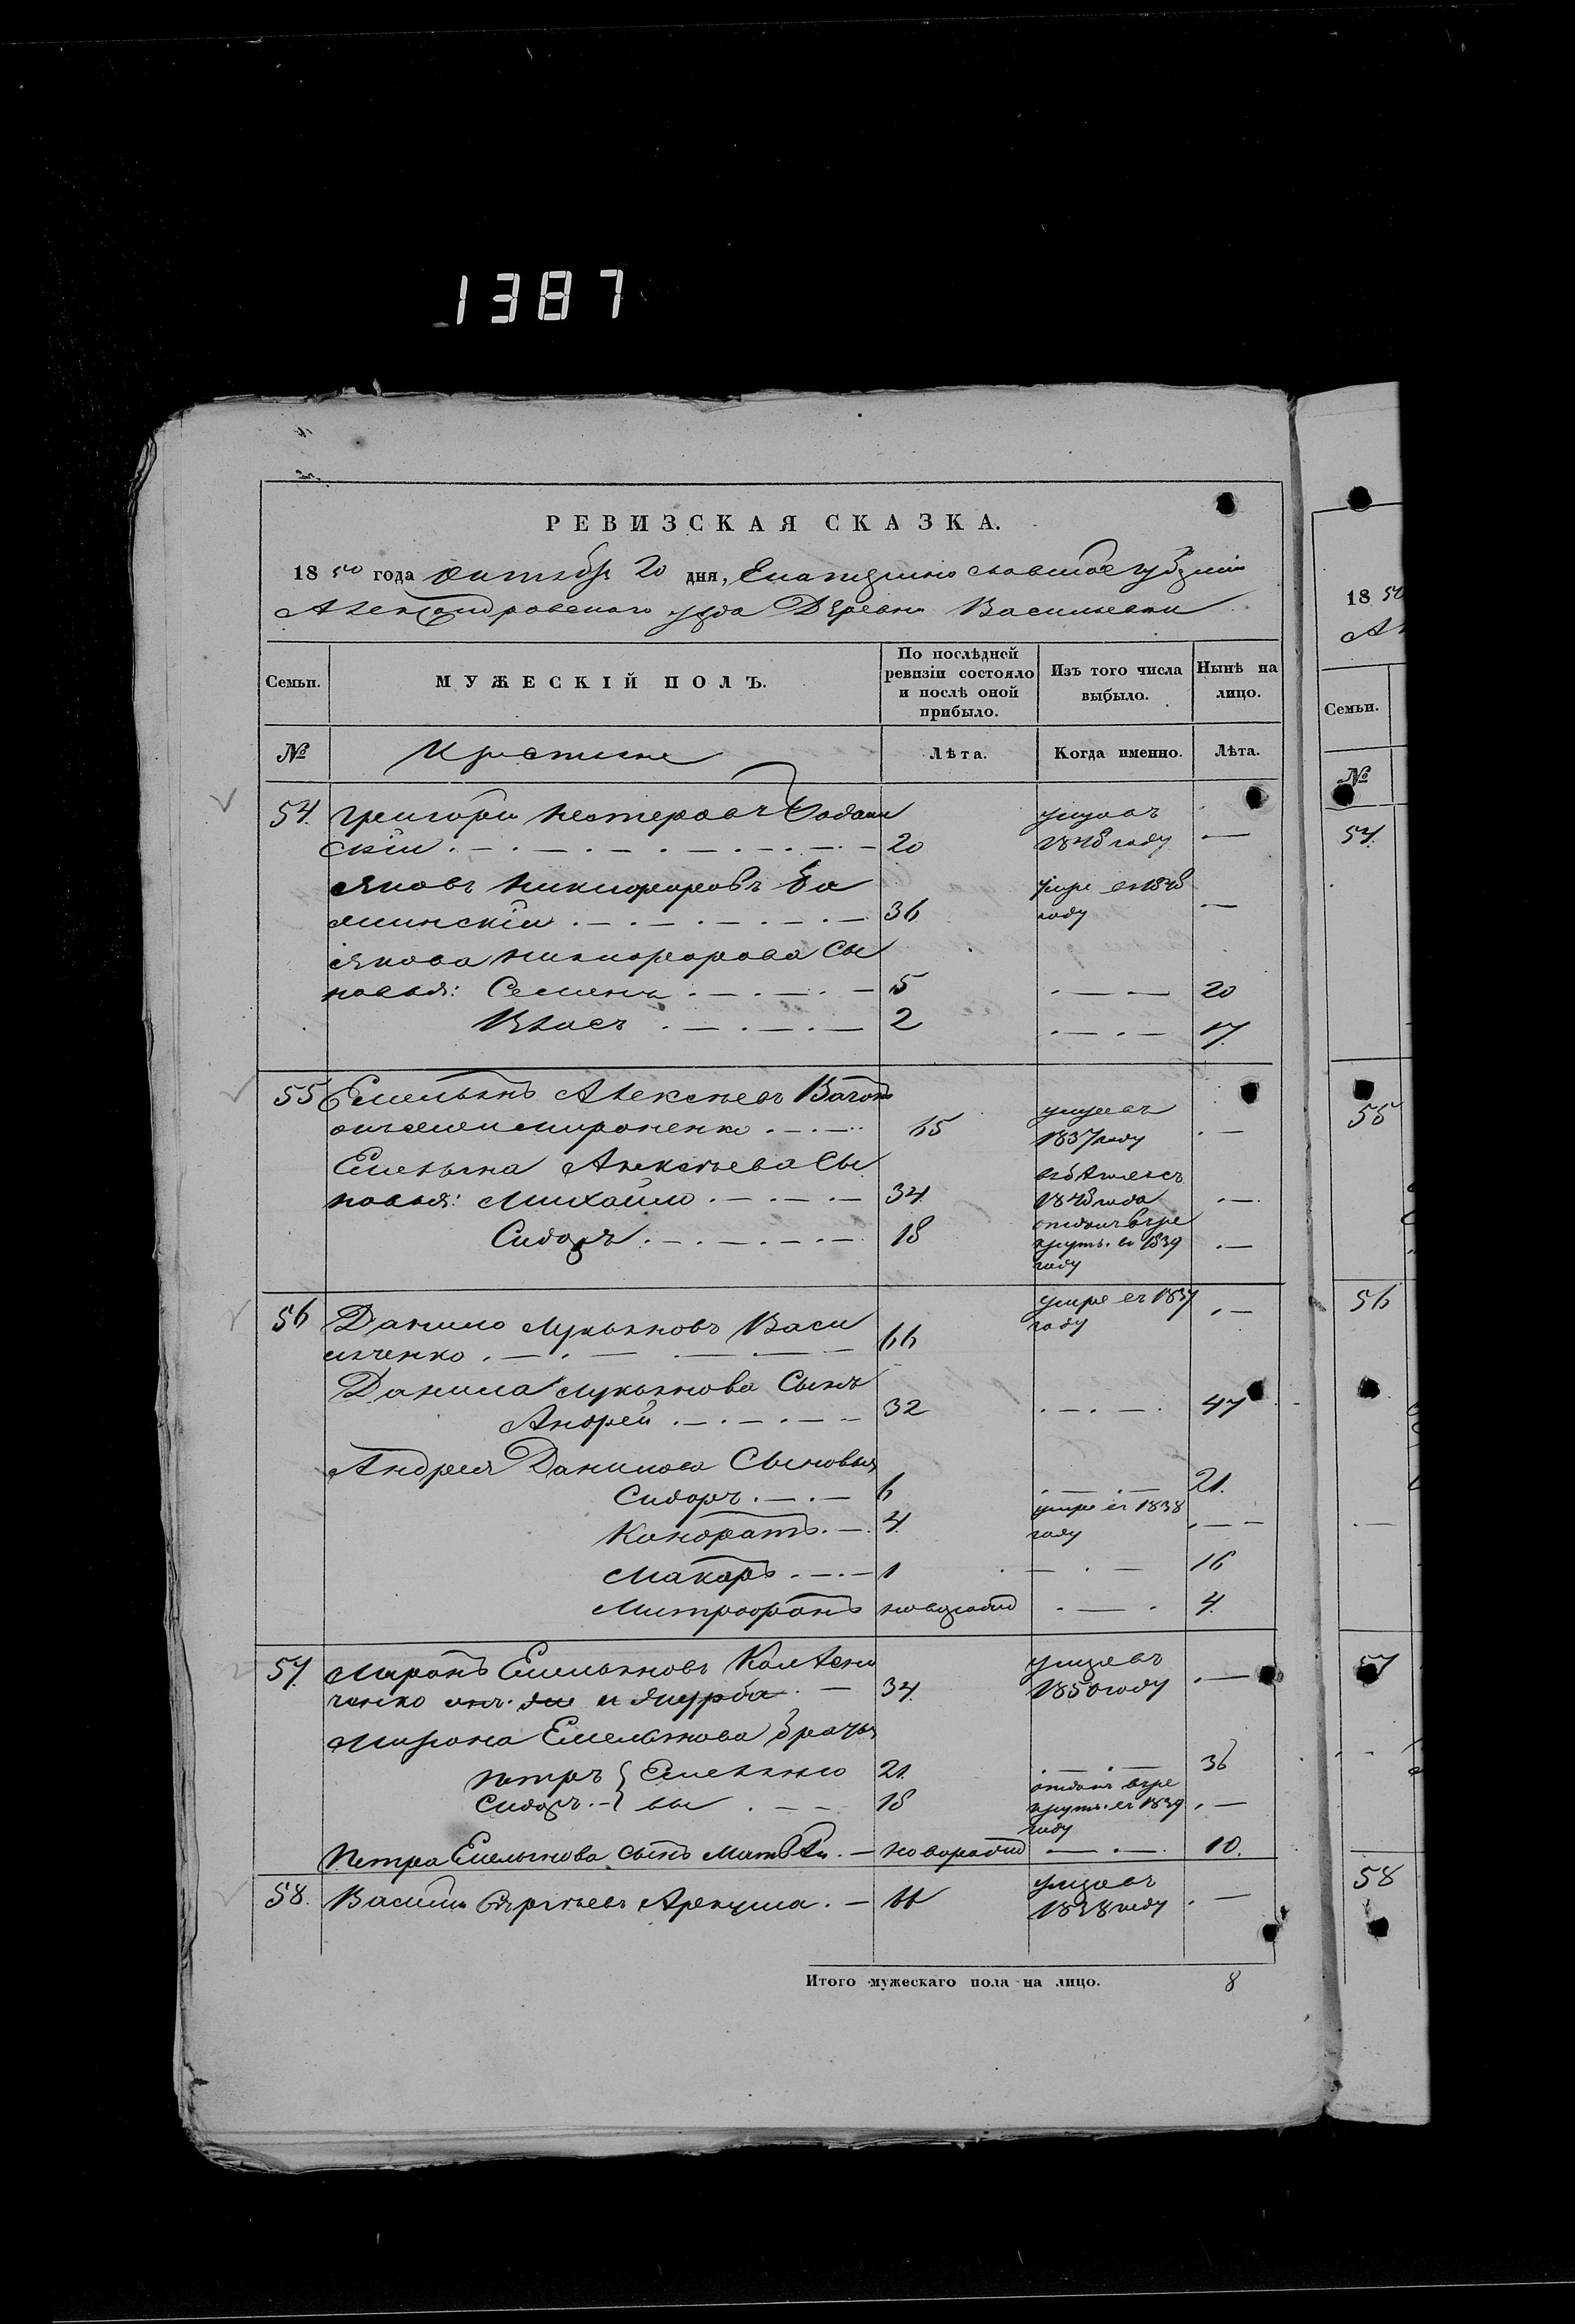 1387
РЕВИЗСКАЯ СКАЗКА.
1850 года Октября 20 дня, Екатеринославской губернии
Александровскаго уезда Деревни Васильевки
Семьи.
МУЖЕСКІЙ ПОЛЪ.
По послѣдней ревизіи состояло и послѣ оной прибыло.
Изъ того числа выбыло.
Нынѣ на лицо.
№
Крестьяне
Лѣта.
Когда именно.
Лѣта.
54. Григори Нестеровъ умре въ
скій 20 1848 году —
Яковъ Никифоровъ умре въ 1848
36 году —
Якова Никифорова Сы
новья: Семенъ 5 — 20
Власъ 2 — 17.
55 Емельянъ Алексѣевъ умре въ
Мироненко 65 1837 году —
Емельяна Алексѣева Сы
новья: Михайло 34 1848 года —
Сидоръ 18 отданъ въ ре
крутъ. въ 1839 —
году
56 Данило Лукьяновъ Васи умре въ 1837 —
льченко 66 году
Данила Лукьянова Сынъ
Андрей 32 — 47
Андрея Данилова Сыновья
Сидоръ 6 — 21.
Кондратъ 4. умре въ 1838 —
году
Макаръ 1 — 16
Митрофанъ новорожд — 4.
57. Миронъ Емельяновъ умре въ
ченко 34. 1850 году —
Мирона Емельянова братья
Петръ } Емельяно 21 — 36
Сидоръ } вы 18 отданъ въ ре
крутъ. въ 1839 —
году
Петра Емельянова сынъ Матвѣй новорожд — 10.
58. Василий Сергѣевъ умре въ
1838 году —
Итого мужескаго пола на лицо. 8
18 50
Семьи.
№
54.
55
56
57
58